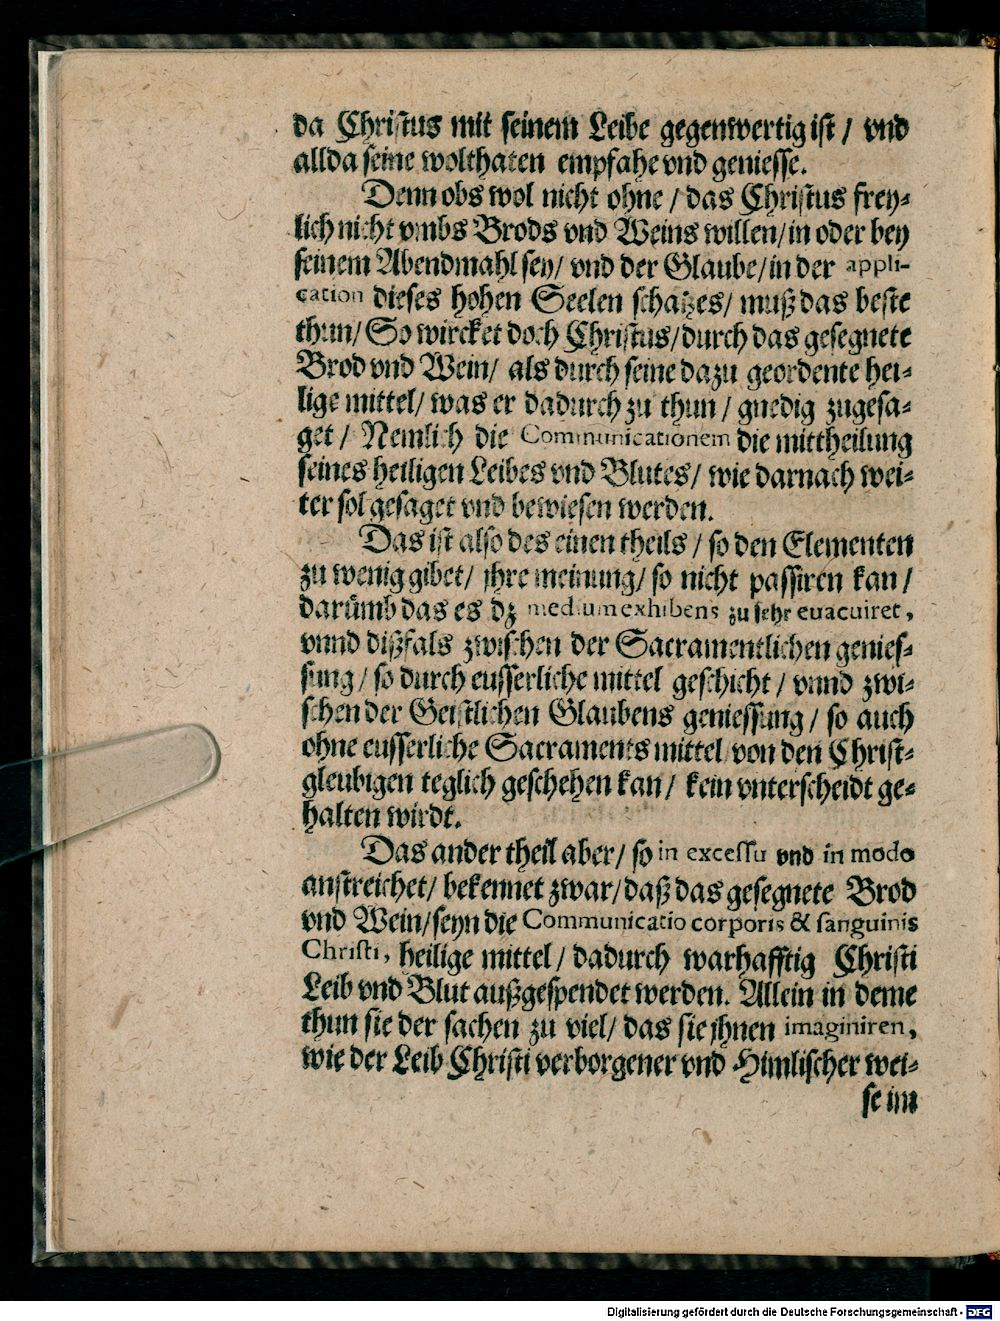 da Christus mit seinem Leibe gegenwertig ist / vnd
allda seine wolthaten empfahe vnd geniesse.
Denn obs wol nicht ohne / das Christus frey-
lich nicht vmbs Brods vnd Weins willen / in oder bey
seinem Abendmahl sey / vnd der Glaube / in der appli-
cation dieses hohen Seelen schatzes / muß das beste
thun / So wircket doch Christus / durch das gesegnete
Brod vnd Wein / als durch seine dazu geordente hei-
lige mittel / was er dadurch zu thun / gnedig zugesa-
get / Nemlich die Communicationem die mittheilung
seines heiligen Leibes vnd Blutes / wie darnach wei-
ter sol gesaget vnd bewiesen werden.
Das ist also des einen theils / so den Elementen
zu wenig gibet / jhre meinung / so nicht passiren kan /
darümb das es dz medium exhibens zu sehr euacuiret,
vnnd dißfals zwischen der Sacramentlichen genies-
sung / so durch eusserliche mittel geschicht / vnnd zwi-
schen der Geistlichen Glaubens geniessung / so auch
ohne eusserliche Sacraments mittel von den Christ-
gleubigen teglich geschehen kan / kein vnterscheidt ge-
halten wirdt.
Das ander theil aber / so in excessu vnd in modo
anstreichet / bekennet zwar / daß das gesegnete Brod
vnd Wein / seyn die Communicatio corporis & sanguinis
Christi, heilige mittel / dadurch warhafftig Christi
Leib vnd Blut außgespendet werden. Allein in deme
thun sie der sachen zu viel / das sie jhnen imaginiren,
wie der Leib Christi verborgener vnd Himlischer wei-
se im
Digitalisierung gefördert durch die Deutsche Forschungsgemeinschaft - DFG